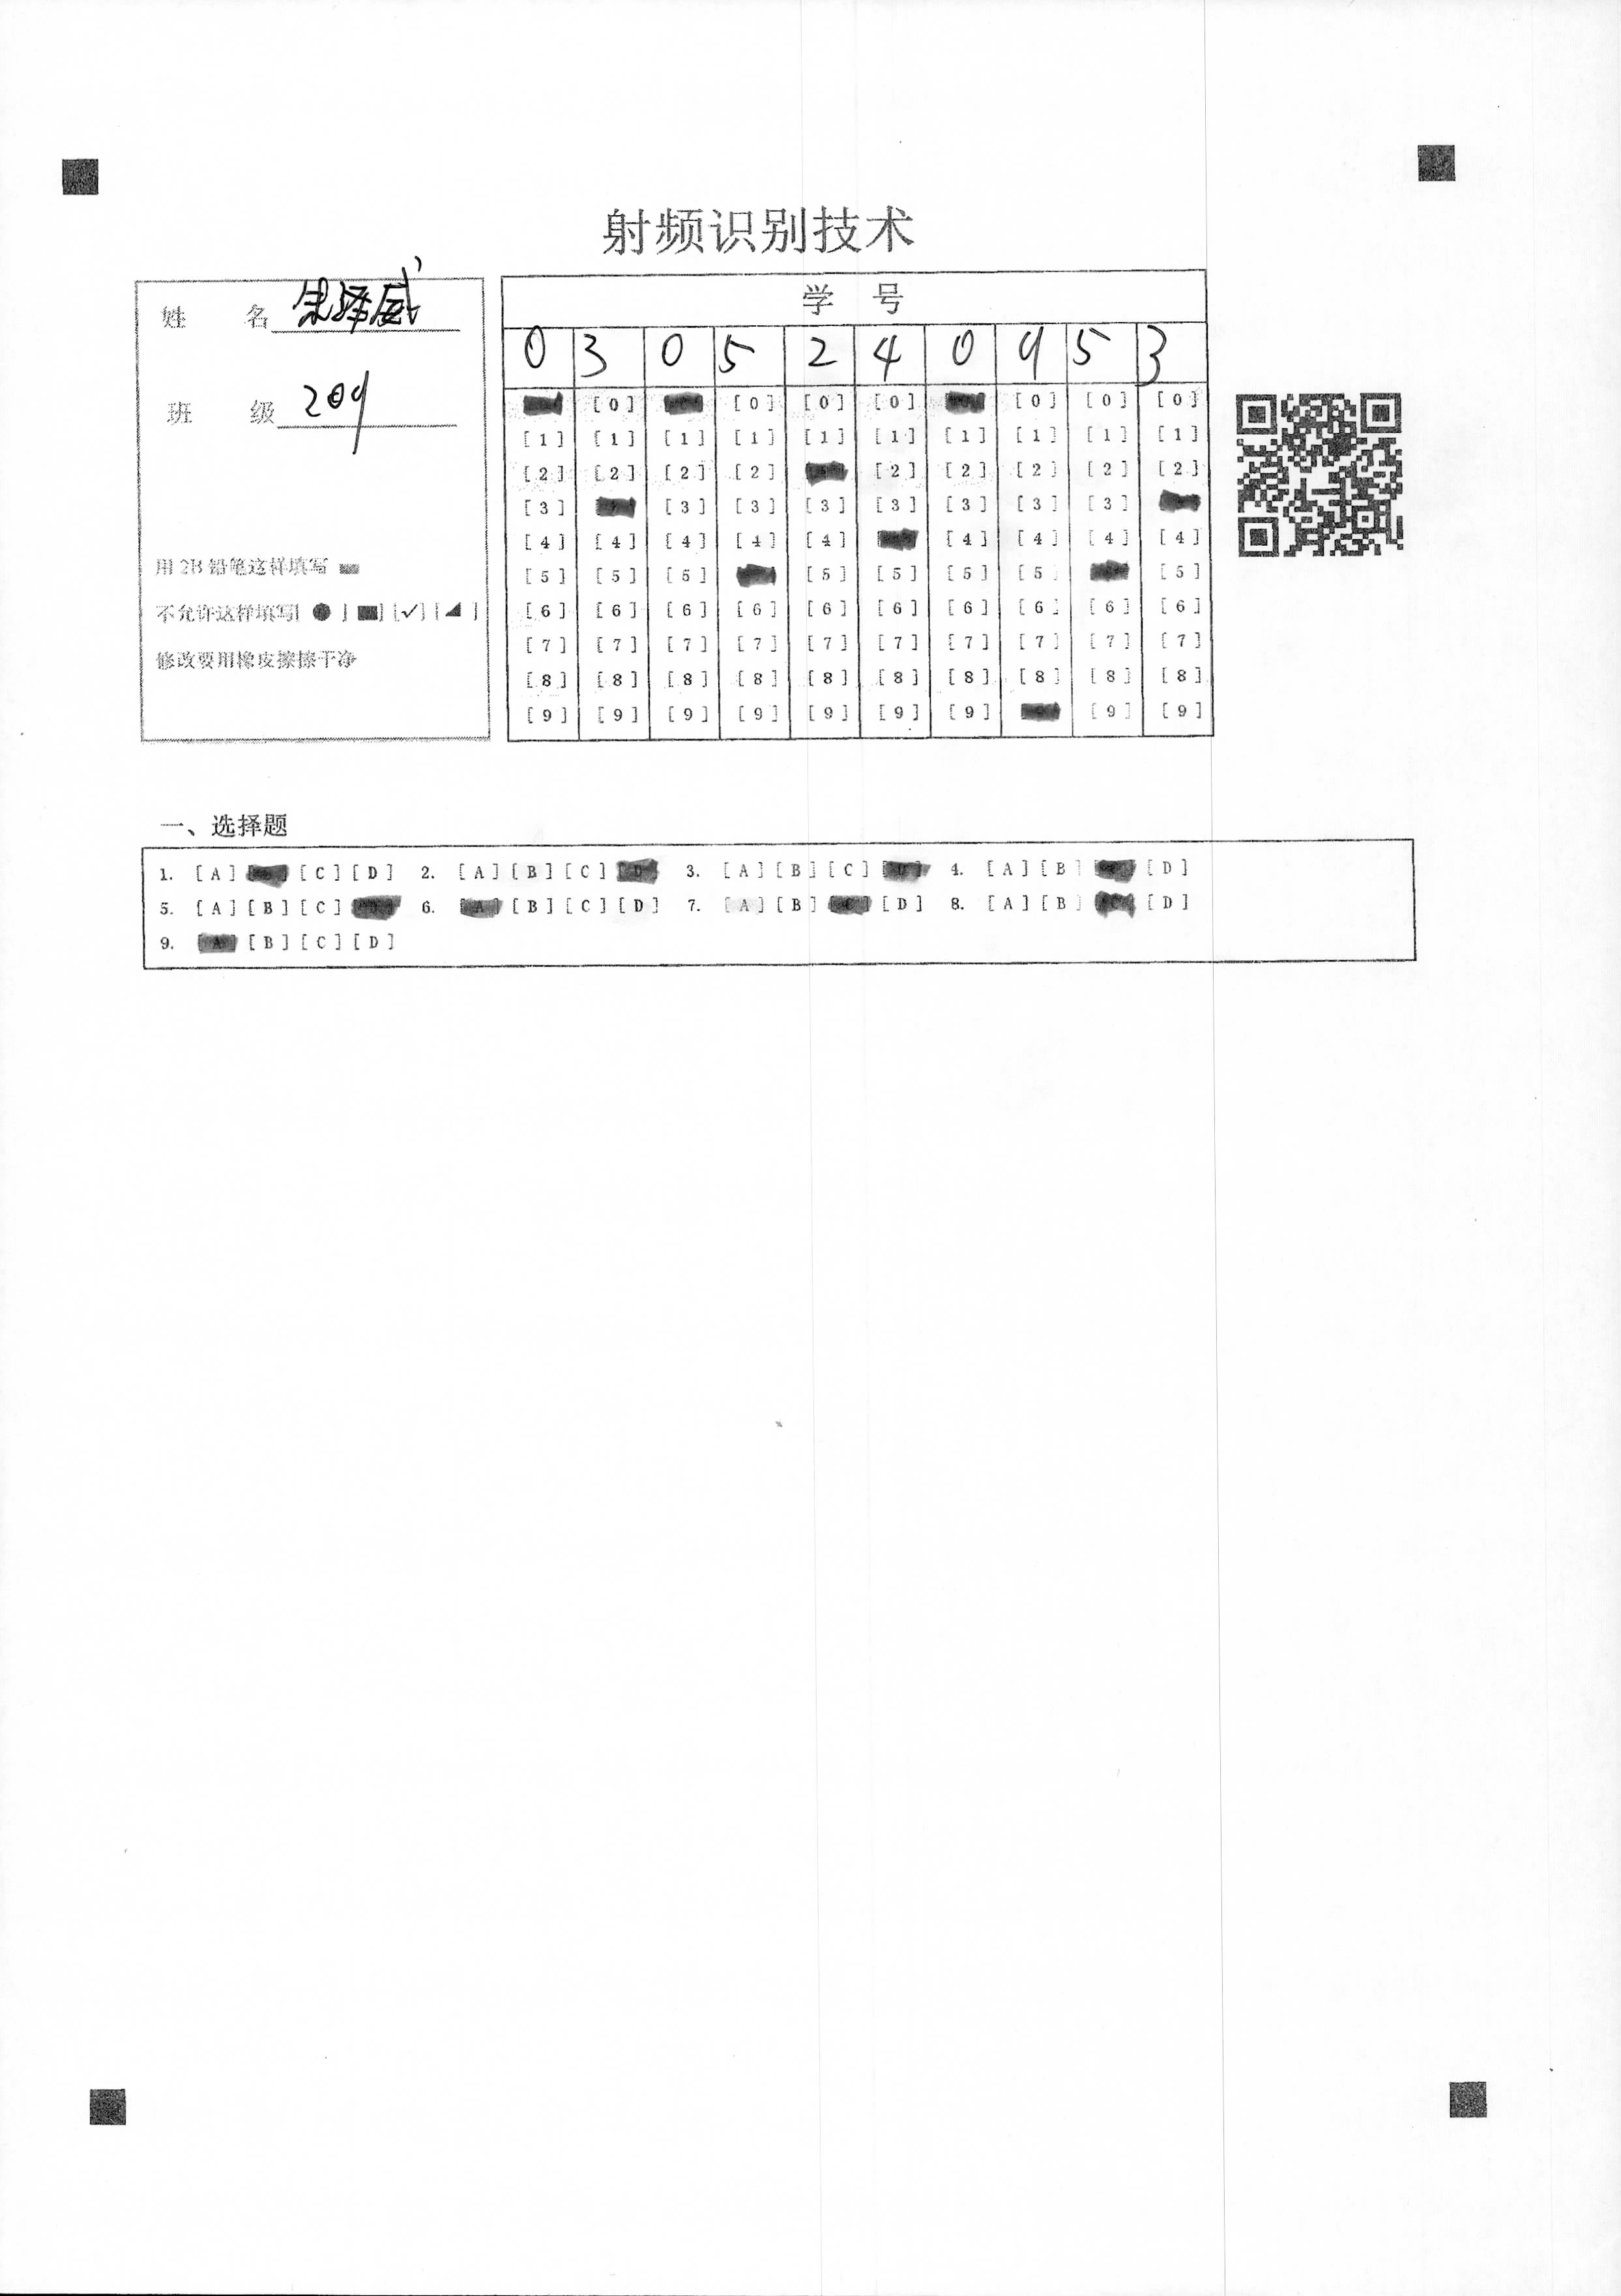 射频识别技术
姓 名 泽威
班 级 209
用 2B 铅笔这样填写
不允许这样填写[ ● ] ■] [✓] [ ◢ ]
修改要用橡皮擦擦干净
学 号
0 3 0 5 2 4 0 9 5 3
[0] [0] [0] [0] [0] [0] [0]
[1] [1] [1] [1] [1] [1] [1] [1] [1] [1]
[2] [2] [2] [2] [2] [2] [2] [2] [2]
[3] [3] [3] [3] [3] [3] [3] [3]
[4] [4] [4] [4] [4] [4] [4] [4] [4]
[5] [5] [5] [5] [5] [5] [5] [5]
[6] [6] [6] [6] [6] [6] [6] [6] [6] [6]
[7] [7] [7] [7] [7] [7] [7] [7] [7] [7]
[8] [8] [8] [8] [8] [8] [8] [8] [8] [8]
[9] [9] [9] [9] [9] [9] [9] [9] [9]
一、选择题
1. [A] [C] [D] 2. [A] [B] [C] [D] 3. [A] [B] [C] [D] 4. [A] [B] [D]
5. [A] [B] [C] 6. [A] [B] [C] [D] 7. [A] [B] [C] [D] 8. [A] [B] [C] [D]
9. [A] [B] [C] [D]